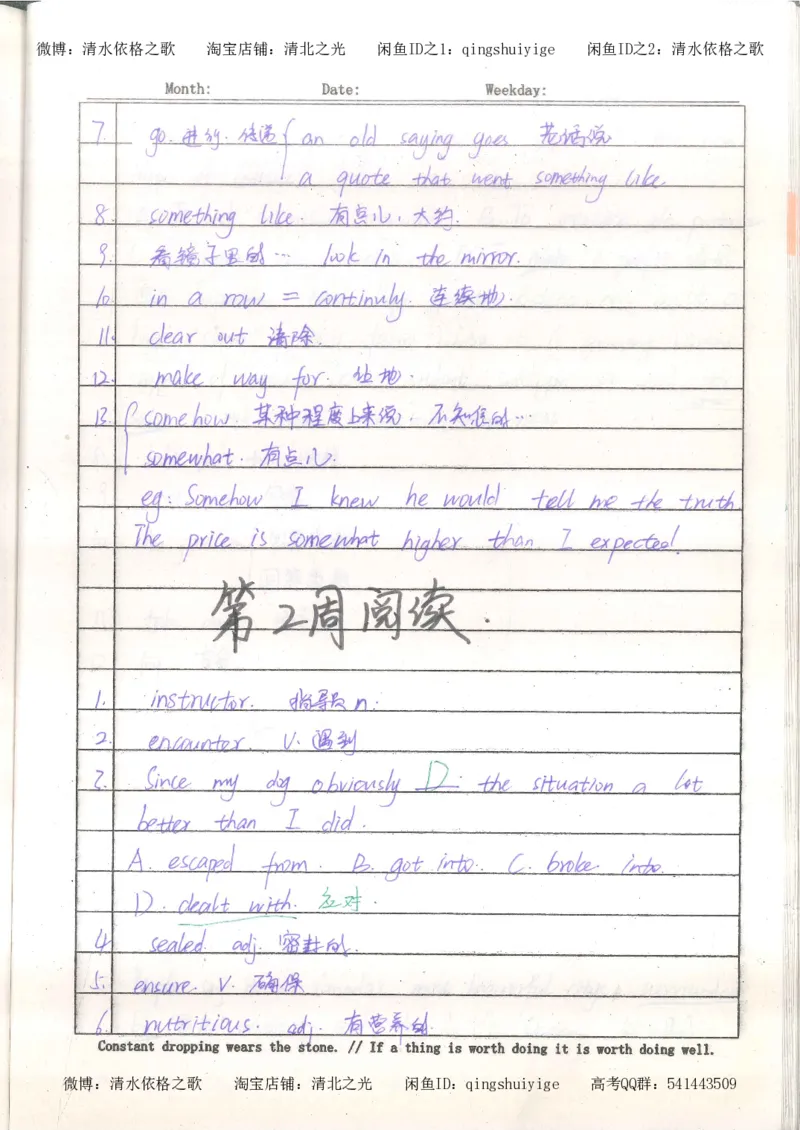 微博：清水依格之歌 淘宝店铺：清北之光 闲鱼ID之1：qingshuiyige 闲鱼ID之2：清水依格之歌
Month: Date: Weekday:
7. go. 进行. 传递 { an old saying goes 老话说
a quote that went something like
8. something like. 有点儿, 大约.
9. 看镜子里的… look in the mirror.
10. in a row = continuly. 连续地.
11. clear out 清除.
12. make way for. 让地.
13. { somehow. 某种程度上来说. 不知怎的…
somewhat. 有点儿.
eg: Somehow I knew he would tell me the truth.
The price is somewhat higher than I expected.
第2周阅读.
1. instructor. 指导员 n.
2. encounter. v. 遇到
3. Since my dog obviously D the situation a lot
better than I did.
A. escaped from. B. got into. C. broke into.
D. dealt with. 应对.
4. sealed. adj. 密封的.
5. ensure. v. 确保
6. nutritious. adj. 有营养的.
Constant dropping wears the stone. // If a thing is worth doing it is worth doing well.
微博：清水依格之歌 淘宝店铺：清北之光 闲鱼ID：qingshuiyige 高考QQ群：541443509